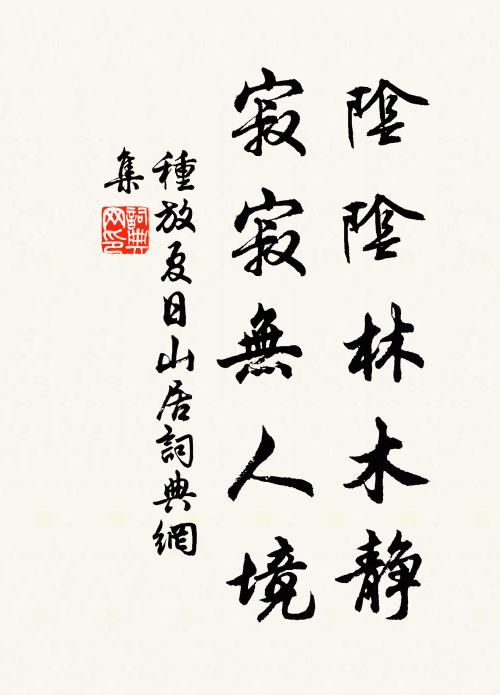 陰陰林木静
寂寂無人境
種放夏日山居詞典網
集
詞典
网印